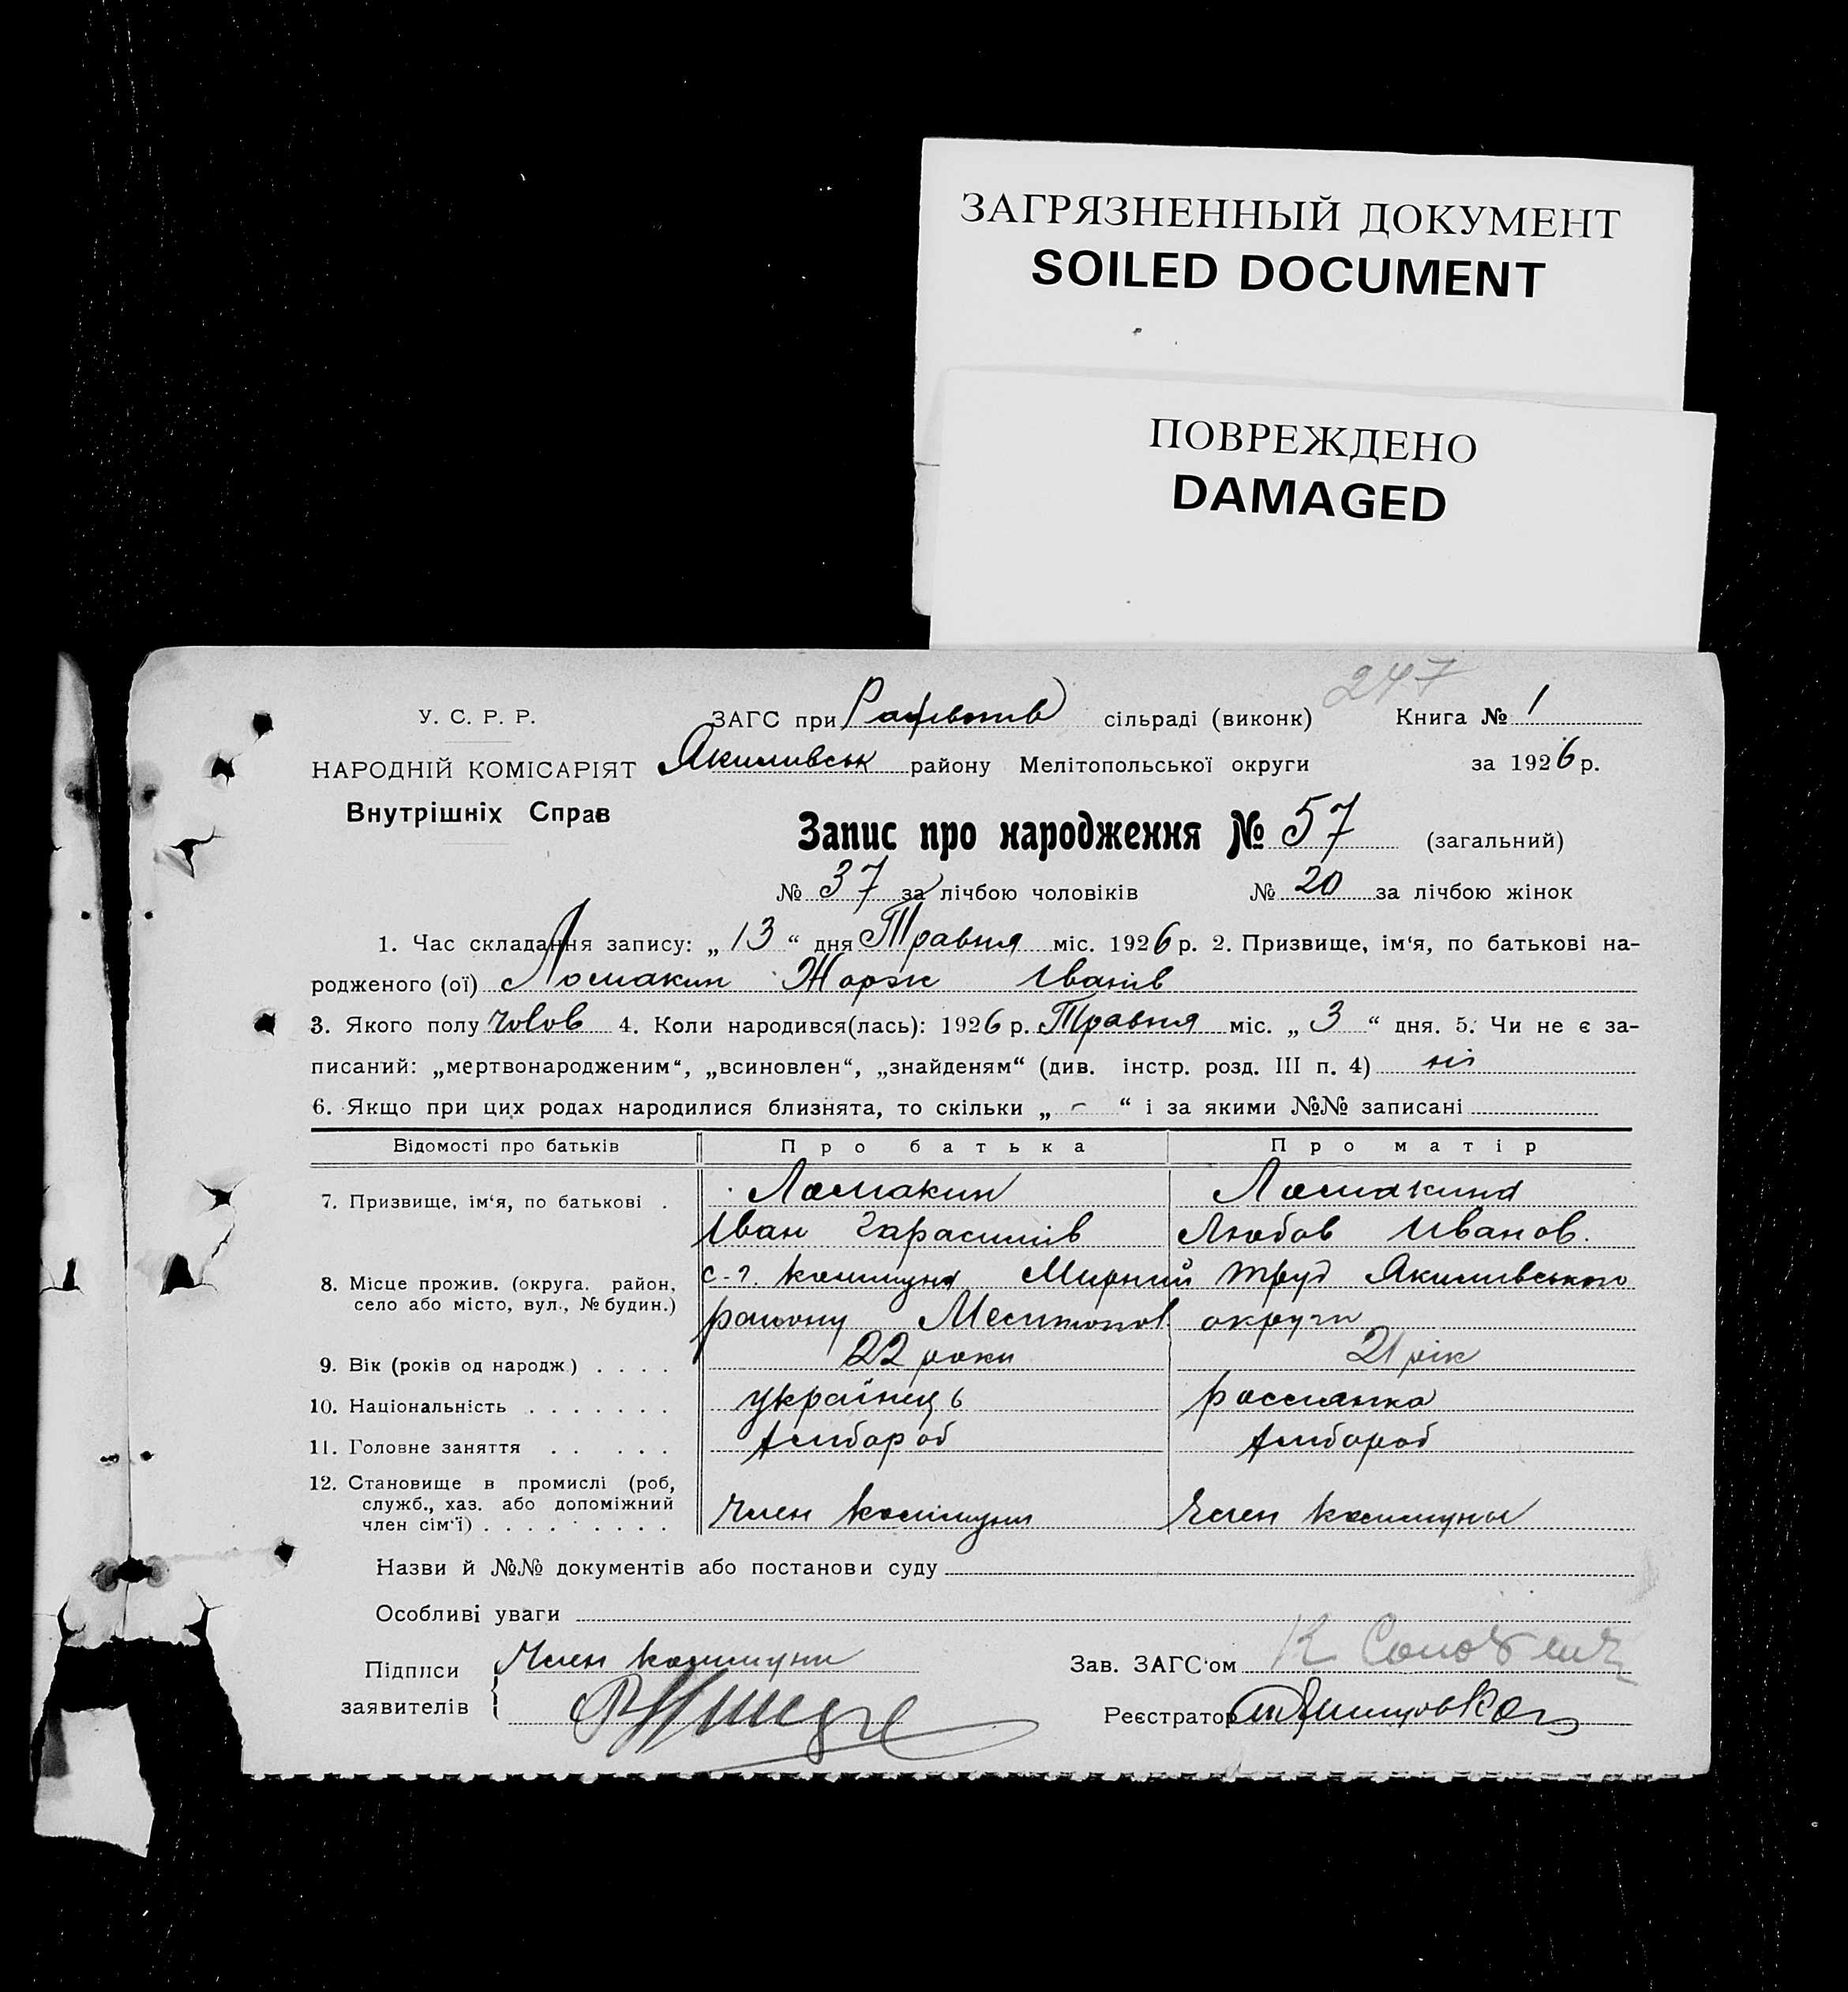 ЗАГРЯЗНЕННЫЙ ДОКУМЕНТ
SOILED DOCUMENT
ПОВРЕЖДЕНО
DAMAGED
247
У. С. Р. Р. ЗАГС при сільраді (виконк) Книга № 1
НАРОДНІЙ КОМІСАРІЯТ Якимивськ району Мелітопольської округи за 1926 р.
Внутрішніх Справ
Запис про народження № 57 (загальний)
№ 37 за лічбою чоловіків № 20 за лічбою жінок
1. Час складання запису: „ 13 “ дня Травня міс. 1926 р. 2. Призвище, ім‘я, по батькові на-
родженого (ої) Ломакин Жорж Іванів
3. Якого полу чолов 4. Коли народився(лась): 1926 р. Травня міс. „ 3 “ дня. 5. Чи не є за-
писаний: „мертвонародженим“, „всиновлен“, „знайденям“ (див. інстр. розд. III п. 4) ні
6. Якщо при цих родах народилися близнята, то скільки „ - “ і за якими №№ записані
Відомості про батьків Про батька Про матір
7. Призвище, ім‘я, по батькові . Ломакин Ломакина
Іван Гарасимів Любов Иванов.
8. Місце прожив. (округа. район, с-г. комуна Мирний труд Якимивського
село або місто, вул., № будин.) району Мелитопол. округи
9. Вік (років од народж.) . . . . 22 роки 21 рік
10. Національність . . . . . . . українець россианка
11. Головне заняття . . . . . хлибороб хлибороб
12. Становище в промислі (роб,
служб., хаз. або допоміжний
член сім‘ї) . . . . . . . . . член коммуни член коммуны
Назви й №№ документів або постанови суду
Особливі уваги
Підписи член коммуни Зав. ЗАГС‘ом К
заявителів Реєстратор